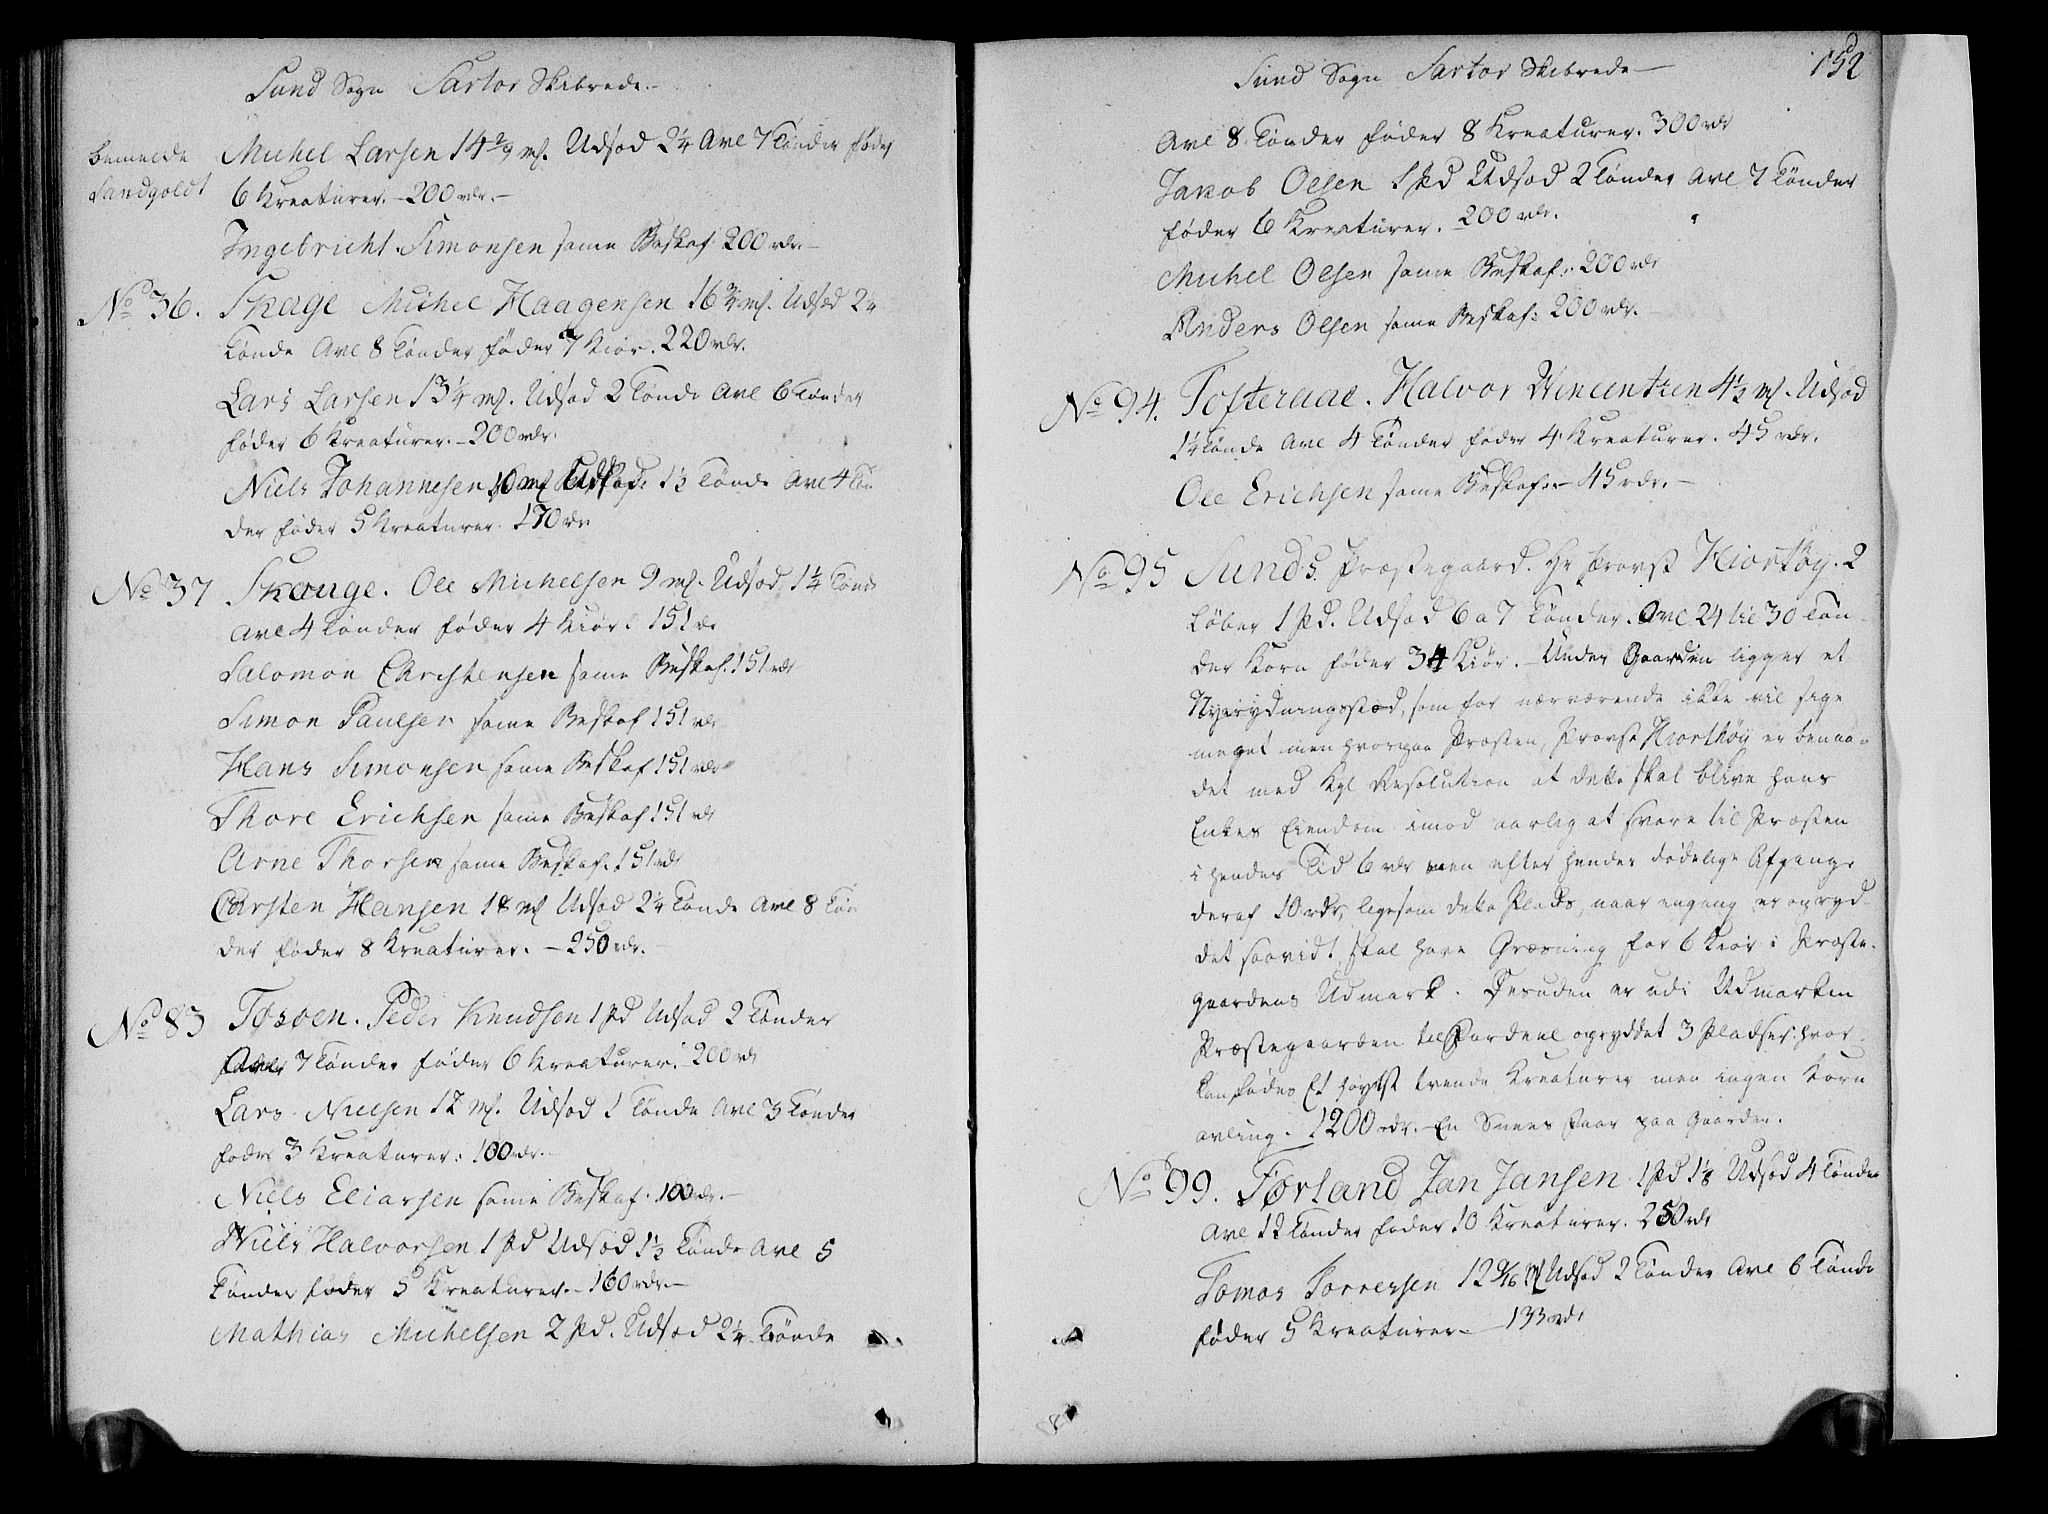 Sund Sogn Sartor Skibrede.
bemelde Michel Larsen 14 2/9 mf. Udsæd 2¼ Avl 7 Tønder føder
Landgoldt 6 Kreaturer. 200 rdr.
Ingebricht Simonsen same Beskaf: 200 rdr.
No 36. Skage Michel Haagensen 16¾ mf. Udsæd 2¼
Tønde Avl 8 Tønder føder 7 Kiør. 220 rdr.
Lars Larsen 13¼ mf. Udsæd 2 Tønde Avl 6 Tønder
føder 6 Kreaturer. 200 rdr.
Niels Johannesen 10 mf Udsæd 1½ Tønde Avl 4 Tøn
der føder 5 Kreaturer. 170 rdr
No 37 Skouge. Ole Michelsen 9 mf. Udsæd 1¼ Tønde
Avl 4 Tønder føder 4 Kiør. 151 rdr
Salomon Christensen same Beskaf. 151 rdr
Simon Paulsen same Beskaf 151 rdr
Hans Simonsen same Beskaf 151 rdr
Thore Erichsen same Beskaf 151 rdr
Arne Thorsen same Beskaf. 151 rdr
Carsten Hansen 18 mf Udsæd 2¼ Tønde Avl 8 Tøn
der føder 8 Kreaturer. 250 rdr.
No 83 Tøsøen. Peder Knudsen 1 Pd Udsæd 2 Tønder
Avl 7 Tønder føder 6 Kreaturer. 200 rdr
Lars Nielsen 12 mf. Udsæd 1 Tønde Avl 3 Tønder
føder 3 Kreaturer. 100 rdr.
Niels Eliasen same Beskaf. 100 rdr.
Niels Halvorsen 1 Pd Udsæd 1½ Tønde Avl 5
Tønder føder 5 Kreaturer. 160 rdr.
Mathias Michelsen 2 Pd. Udsæd 2¼ Tønde
Sund Sogn Sartor Skibrede 152
Avl 8 Tønder føder 8 Kreaturer. 300 rdr
Jakob Olsen 1 Pd Udsæd 2 Tønder Avl 7 Tønder
føder 6 Kreaturer. 200 rdr.
Michel Olsen same Beskaf: 200 rdr
Anders Olsen same Beskaf: 200 rdr.
No 94. Tofteraae. Halvor Wincentzen 4½ mf. Udsæd
1¼ Tønde Avl 4 Tønder føder 4 Kreaturer. 45 rdr.
Ole Erichsen same Beskaf: 45 rdr.
No 95 Sunds Præstegaard. Hr Provst Hiorthøy. 2
Løber 1 Pd. Udsæd 6 a 7 Tønder. Avl 24 til 30 Tøn
der Korn føder 34 Kiør. Under Gaarden ligger et
Nyrydningsstæd, som for nærværende ikke vil sige
meget men hvorpaa Præsten, Provst Hiorthøy er benaa-
det med Kgl Resolution at dette skal blive hans
Enkes Eiendom imod aarlig at svare til Præsten
i hendes Tid 6 rdr men efter hendes dødelige Afgang
deraf 10 rdr, ligesom dette Plads, naar engang er opryd-
det saavidt, skal have Græsning for 6 Kiør i Præste-
gaardens Udmark. Desuden er udi Udmarken
Præstegaarden til Fordeel opryddet 3 Pladser, hvor
kan fødes Et høyst trende Kreaturer men ingen Korn
avling. 1200 rdr. En paa Gaarden.
No 99. Førland Jan Jansen 1 Pd 1⅛ Udsæd 4 Tønder
Avl 12 Tønder føder 10 Kreaturer. 250 rdr
Tomas Torrersen 12 9/16 mf Udsæd 2 Tønder Avl 6 Tønde
føder 5 Kreaturer 133 rdr